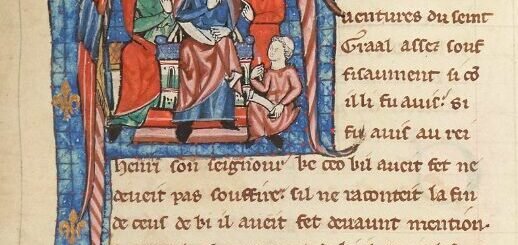 uentures du seint
Graal assez souf
fisaument si cō
il li fu auis: si
fu auis au rei
henri son seignour ke ceo kil aueit fet ne
deueit pas souffire: sil ne raconteit la fin
de ceus de ki il aueit fet deuaunt mention.